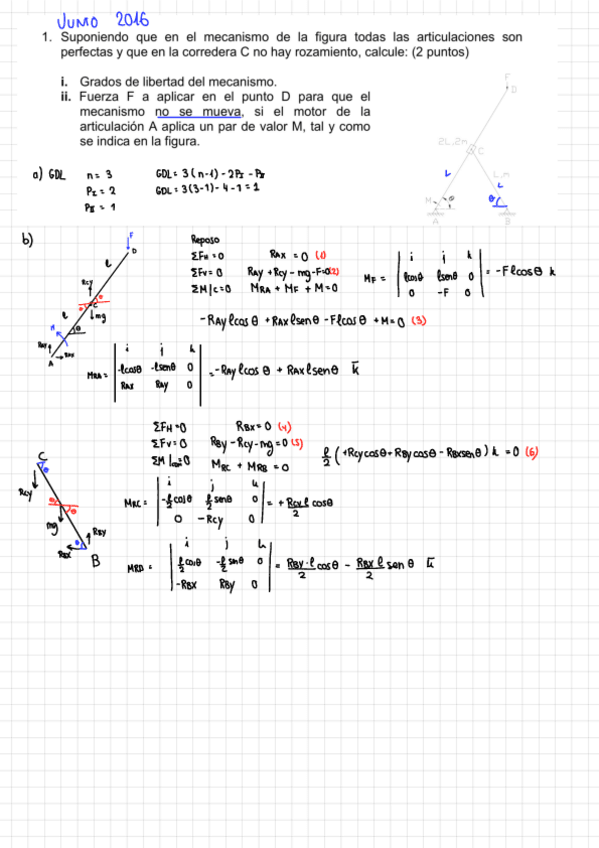 JUNIO 2016
1. Suponiendo que en el mecanismo de la figura todas las articulaciones son
perfectas y que en la corredera C no hay rozamiento, calcule: (2 puntos)
i. Grados de libertad del mecanismo.
ii. Fuerza F a aplicar en el punto D para que el
mecanismo no se mueva, si el motor de la
articulación A aplica un par de valor M, tal y como
se indica en la figura.
F
D
2L,2m
C
L
L,m
L
M
θ
θ
A
B
a) GDL n = 3 GDL = 3(n-1) - 2PI - PII
PI = 2 GDL = 3(3-1) - 4 - 1 = 1
PII = 1
b)
F
D
l
Rcy
θ
C
mg
l
M
θ
RAy
RAx
A
Reposo
ΣFH = 0 RAX = 0 (1)
ΣFV = 0 RAY + RCY - mg - F = 0 (2)
ΣM|C = 0 MRA + MF + M = 0
MF = | i j k | lcosθ lsenθ 0 | 0 -F 0 | = -Flcosθ k
-RAY lcosθ + RAX lsenθ - Flcosθ + M = 0 (3)
MRA = | i j k | -lcosθ -lsenθ 0 | RAX RAY 0 | = -RAY lcosθ + RAX lsenθ k
ΣFH = 0 RBX = 0 (4)
ΣFV = 0 RBY - RCY - mg = 0 (5)
MRC + MRB = 0
l/2 (+RCY cosθ + RBY cosθ - RBX senθ) k = 0 (6)
C
θ
RCY
θ
mg
RBY
RBX
B
MRC = | i j k | -l/2 cosθ l/2 senθ 0 | 0 -RCY 0 | = + RCY l/2 cosθ
MRD = | i j k | l/2 cosθ -l/2 senθ 0 | -RBX RBY 0 | = RBY·l/2 cosθ - RBX l/2 senθ k